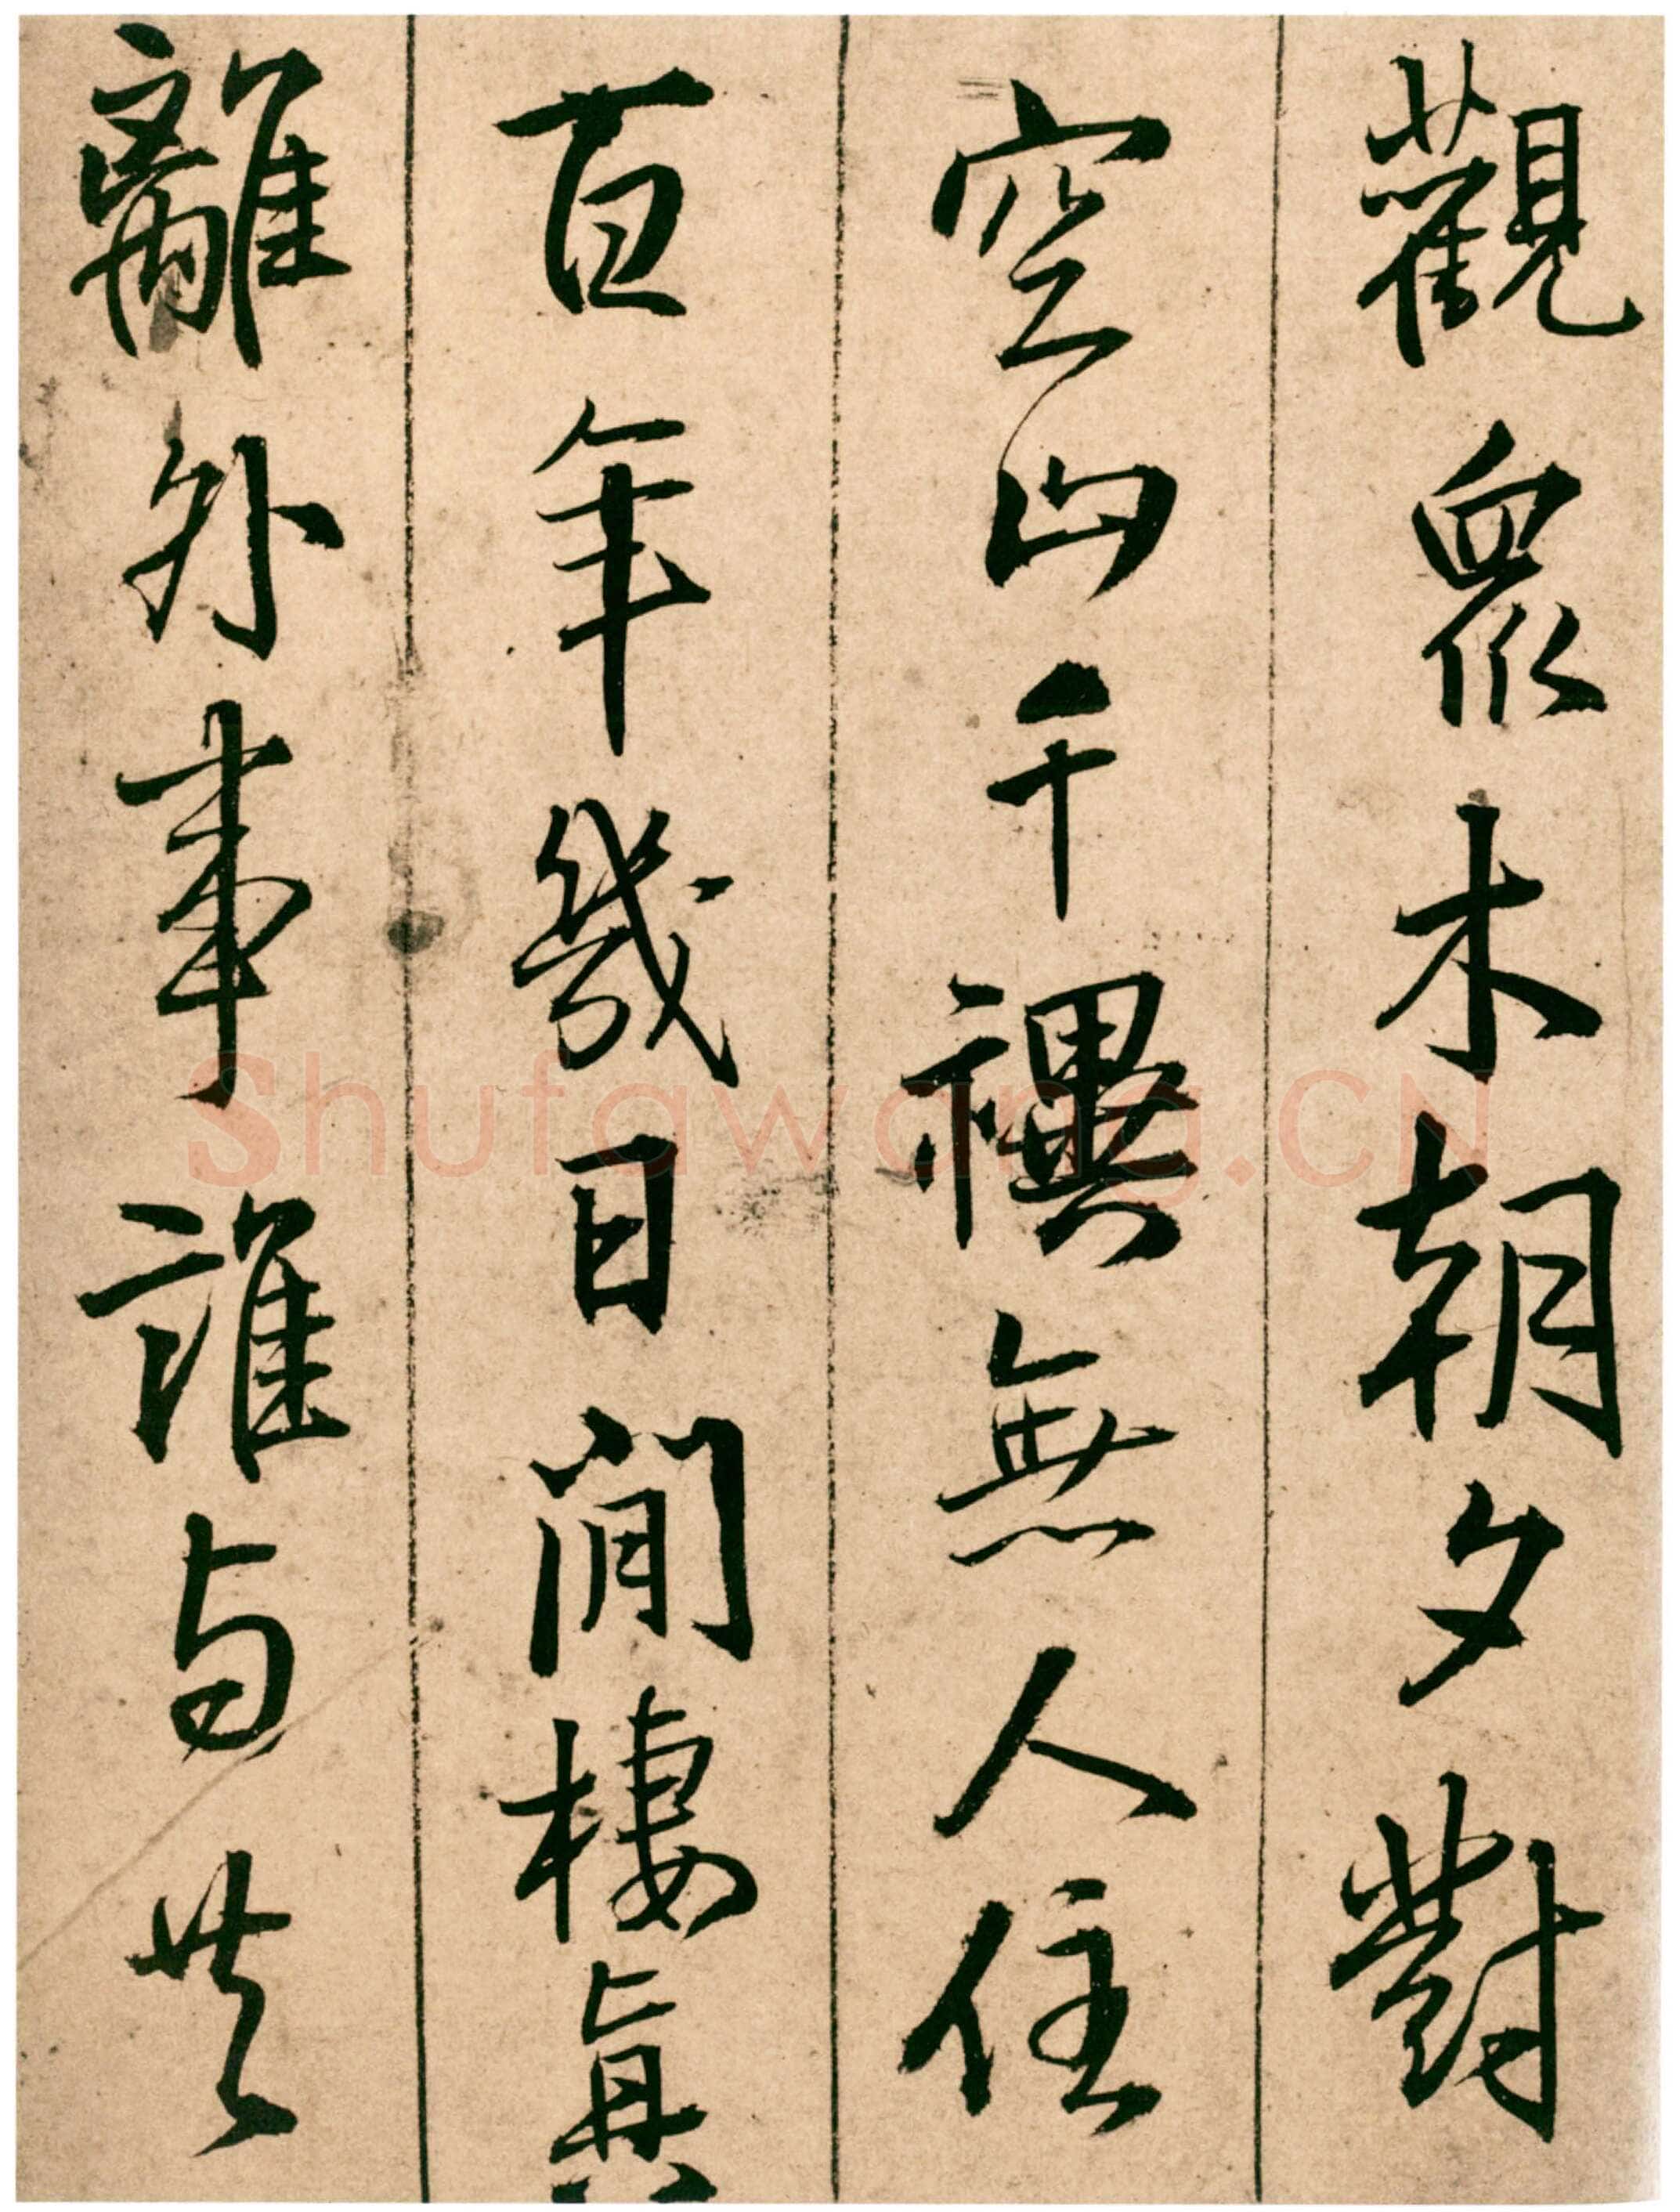 觀衆木朝夕對
空山千禩無人住
百年幾日閒棲真
離外事誰与共
Shufawang.CN